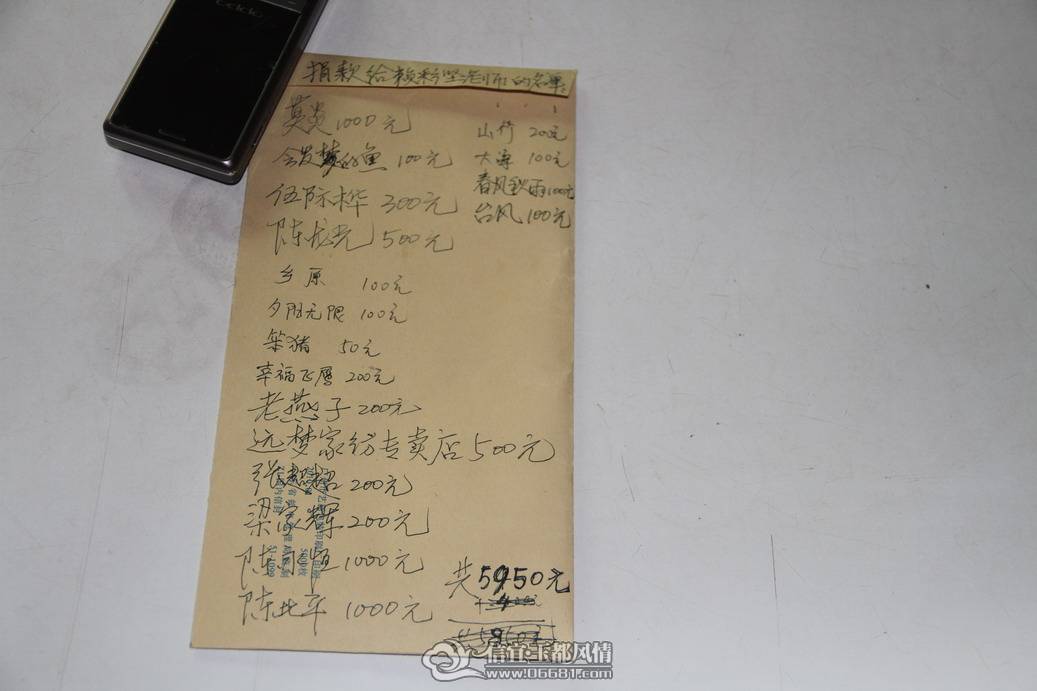 oppo
捐款给赖彩坚老师的名单:
莫炎1000元
会发梦的鱼 100元
伍际桦 300元
陈龙光 500元
乡原 100元
夕阳无限 100元
笨猪 50元
幸福飞鹰 200元
老燕子 200元
远梦家纺专卖店500元
张超超 200元
梁家辉 200元
陈 恒 1000元
陈北平 1000元
山竹 200元
大海 100元
春风秋雨100元
台风 100元
共5950元
信宜玉都风情
www.06681.com